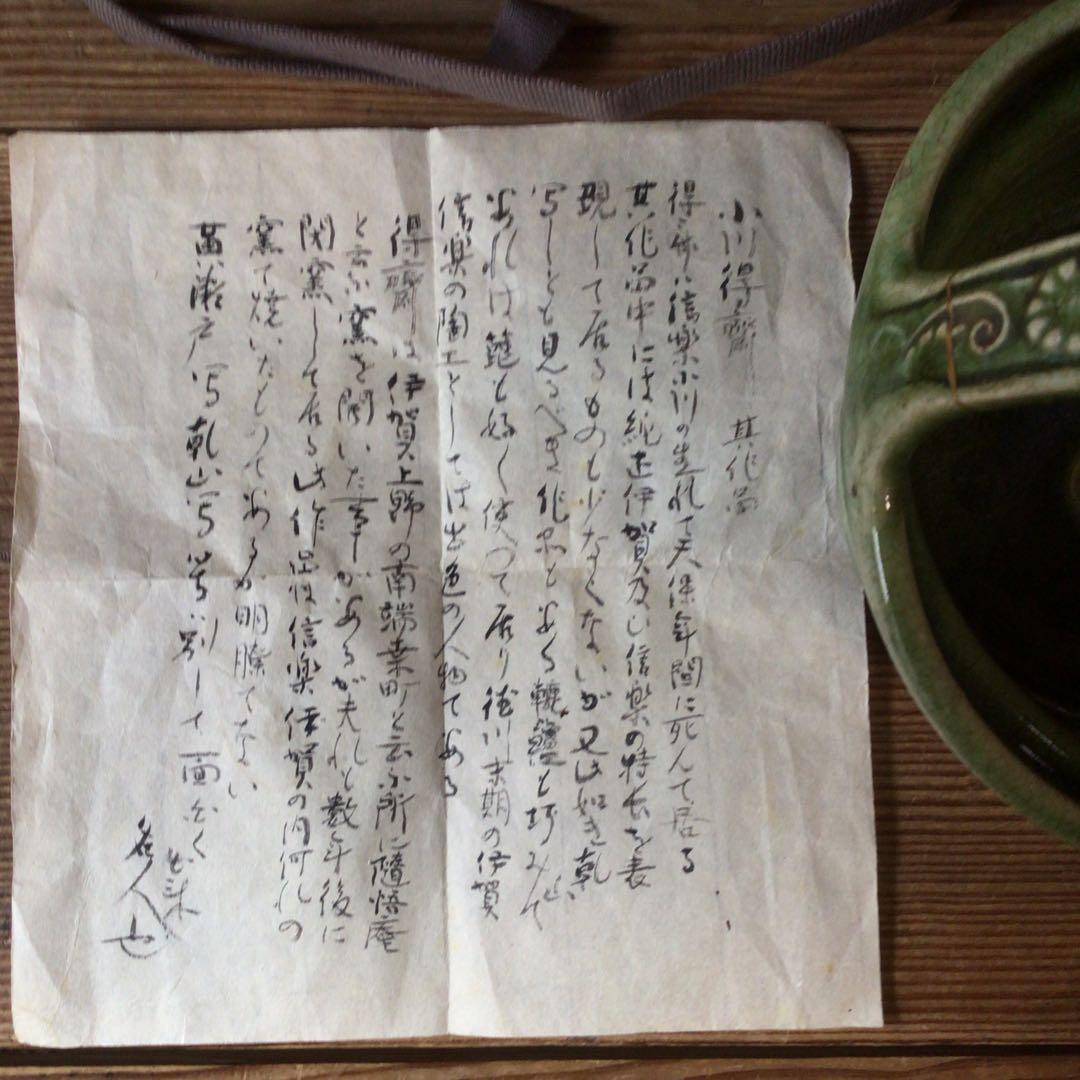 小川得斎 其作品
得斎は信楽小川の生れで天保年間に死んで居る
其作品中には純正伊賀及い信楽の特長を表
現して居るものも少なくないが又此如き乾山
写しとも見るべき作品もある轆轤も巧みで
あれは篦も好く使つて居り徳川末期の伊賀
信楽の陶工としては出色の人物である
得斎は伊賀上野の南端幸町と云ふ所に随悟庵
と云ふ窯を開いた事があるが夫れも数年後に
閉窯して居る此作品は信楽伊賀の内何れの
窯で焼いたものであるか明瞭でない
黄瀬戸写乾山写等別して面白く
出来
名人也